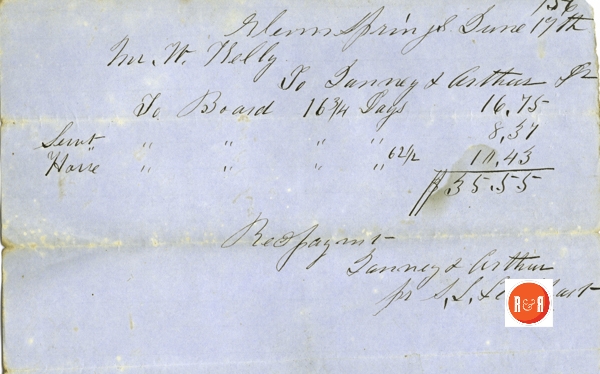 156
Glenn Springs June 19th
Mr. W. Kelly
To Zanney & Arthur Dr
To Board 16 3/4 Days 16,75
Servt " " " " 8,37
Horse " " " " 62 1/2 10,43
$35,55
Recd paymt
Zanney & Arthur
pr S, L,
R&R